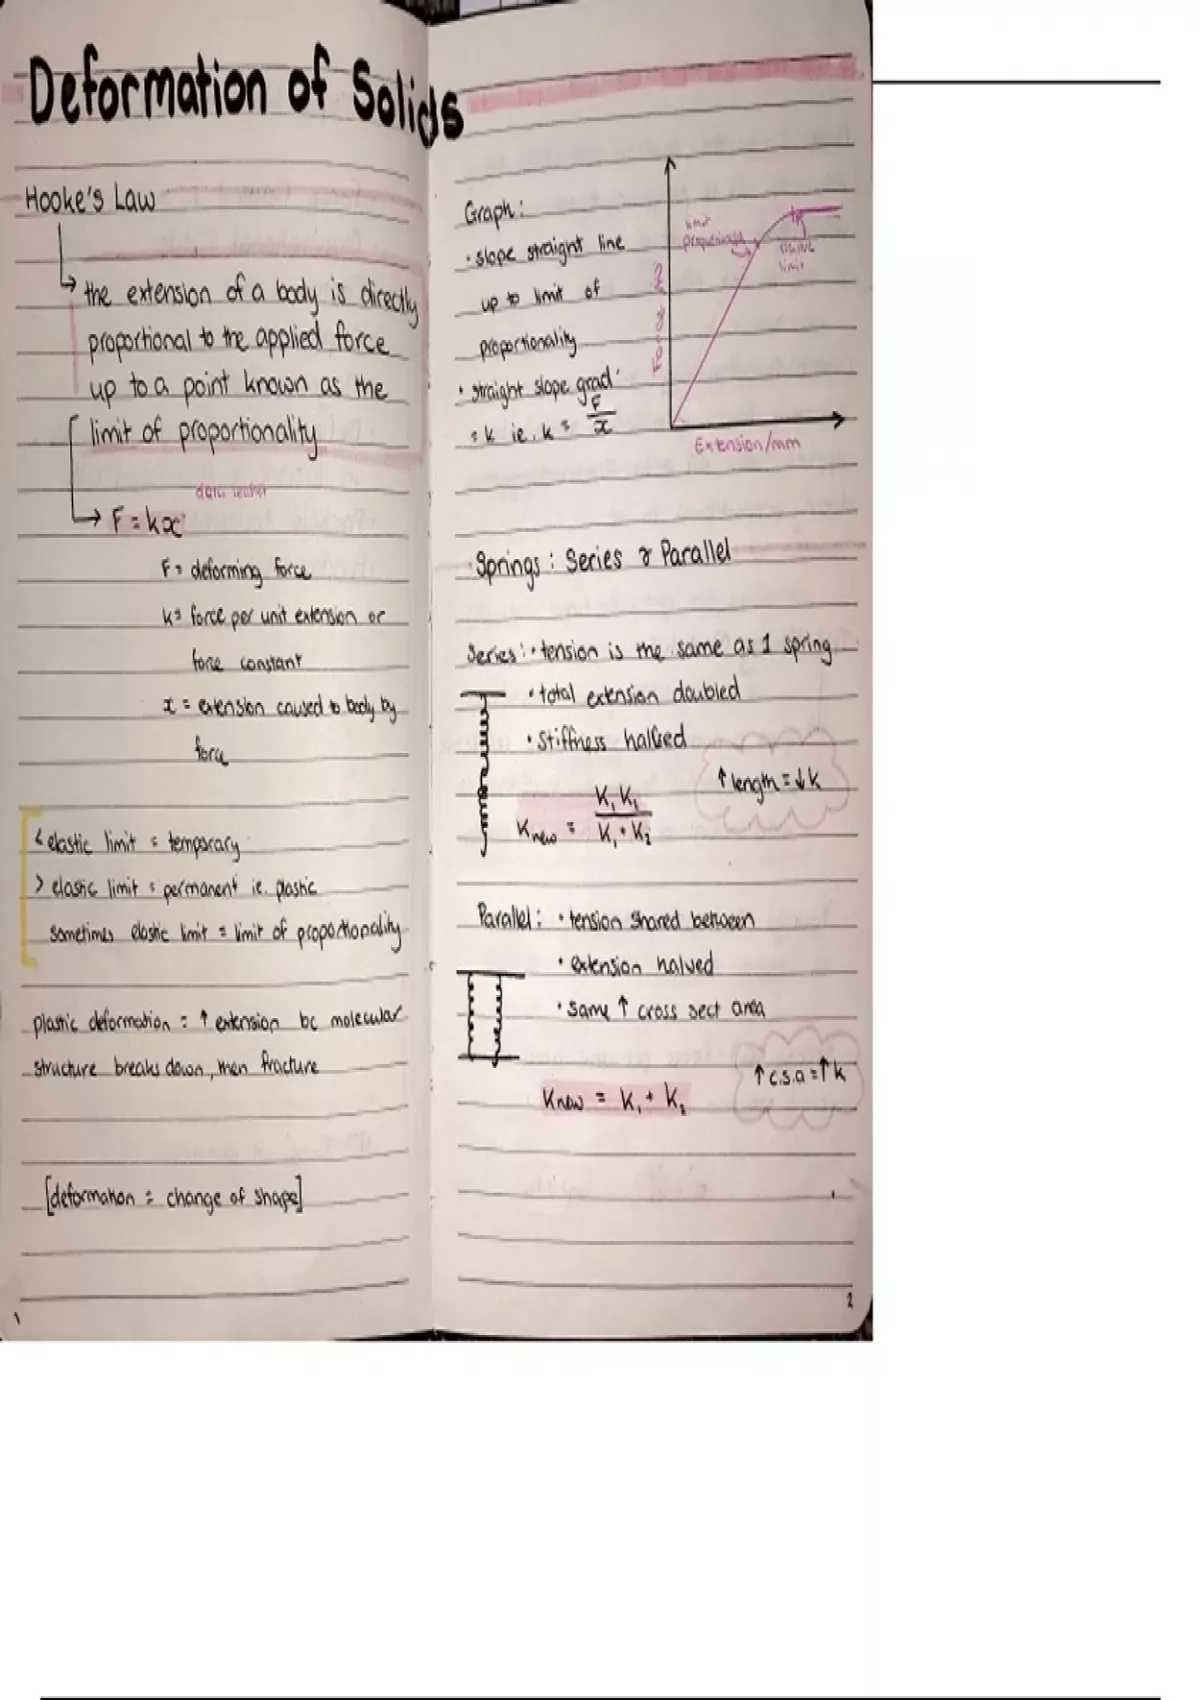 Deformation of Solids
Hooke's Law
the extension of a body is directly
proportional to the applied force
up to a point known as the
limit of proportionality
data leaflet
F = kx
F = deforming force
k = force per unit extension or
force constant
x = extension caused to body by
force
< elastic limit = temporary
> elastic limit = permanent ie. plastic
sometimes elastic limit = limit of proportionality
plastic deformation = ↑ extension bc molecular
structure breaks down, then fracture
[deformation = change of shape]
1
Graph:
• slope straight line
up to limit of
proportionality
• straight slope grad
= k ie. k = F/x
limit
proportionality
elastic
limit
Force/N
Extension/mm
Springs: Series & Parallel
Series: • tension is the same as 1 spring
• total extension doubled
• stiffness halved
↑ length = ↓ k
Knew = K₁K₁/K₁+K₂
Parallel: • tension shared between
• extension halved
• same ↑ cross sect area
↑ c.s.a = ↑ k
Knew = K₁ + K₂
2